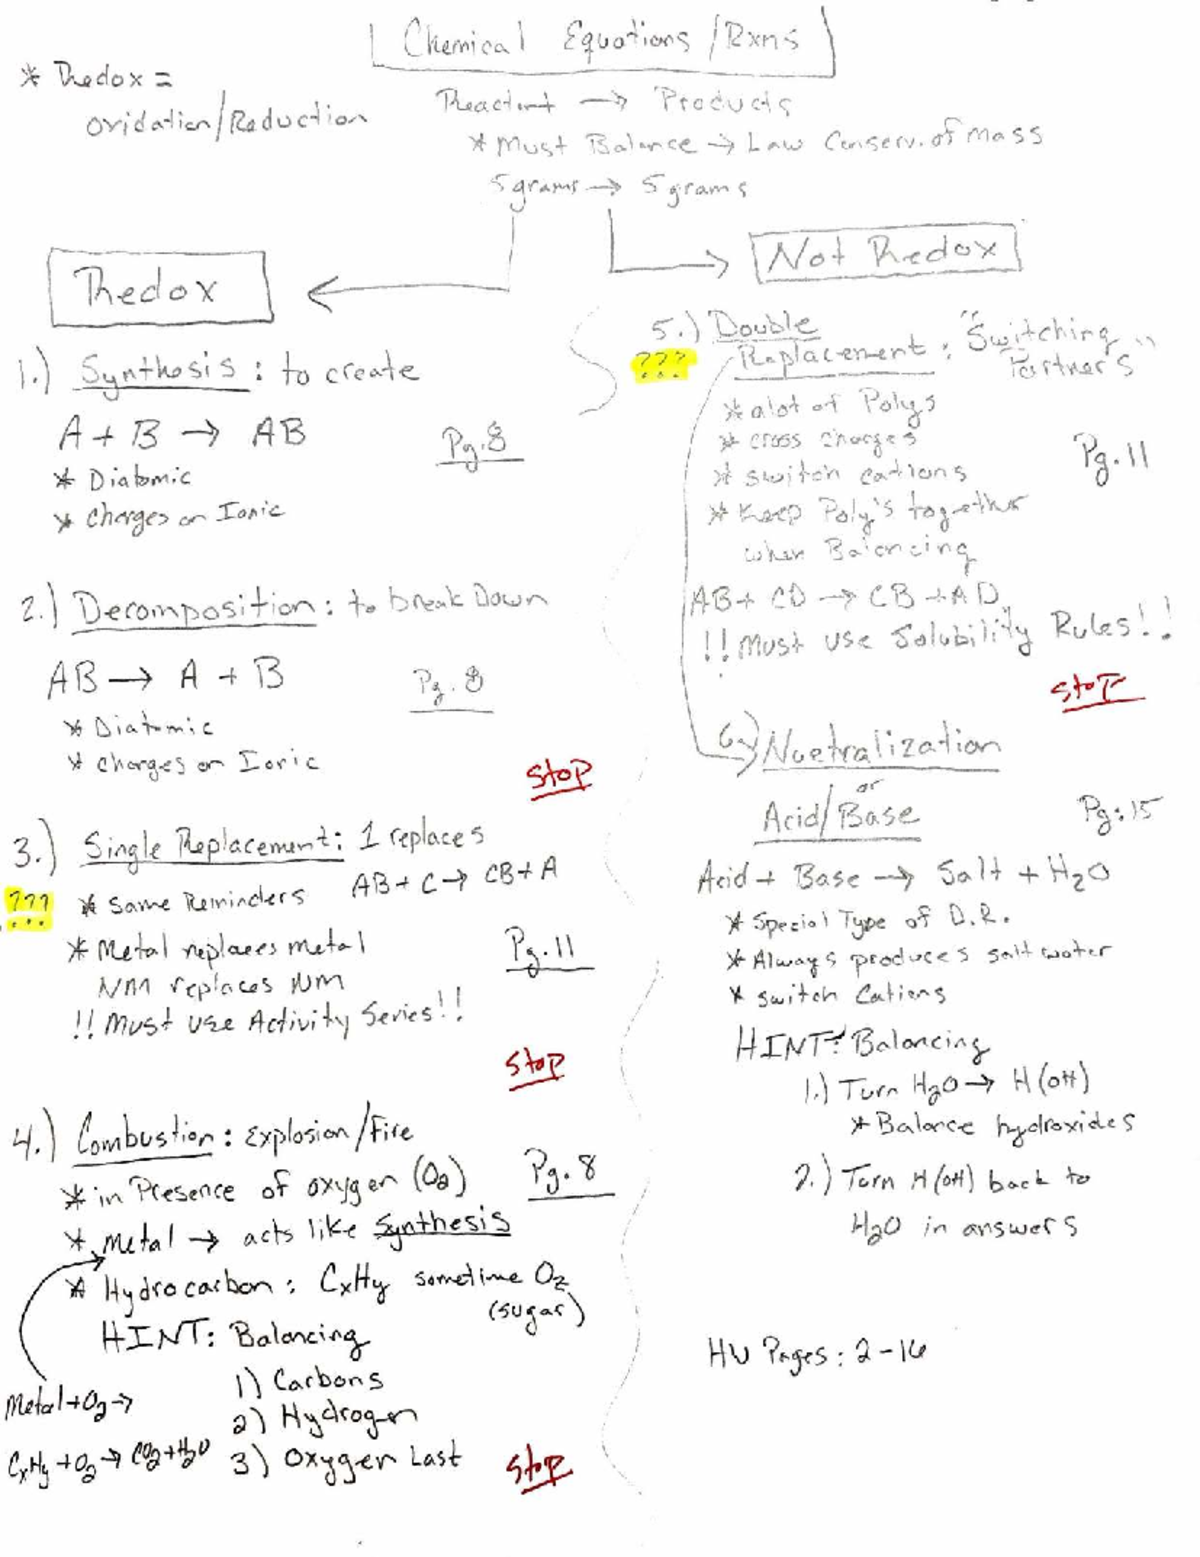 Chemical Equations/Rxns
* Redox =
oxidation/Reduction
Reactant → Products
* Must Balance → Law Conserv. of Mass
5 grams → 5 grams
Redox
1.) Synthesis : to create
A + B → AB
Pg. 8
* Diatomic
* Charges on Ionic
2.) Decomposition : to break Down
AB → A + B
Pg. 8
* Diatomic
* charges on Ionic
Stop
3.) Single Replacement: 1 replaces
??? * Same Reminders AB + C → CB + A
* Metal replaces metal
Pg. 11
NM replaces NM
!! Must use Activity Series!!
Stop
4.) Combustion : Explosion/Fire
* in Presence of oxygen (O2)
Pg. 8
* Metal → acts like Synthesis
* Hydrocarbon : CxHy sometime O2
(sugar)
HINT: Balancing
1) Carbons
Metal + O2 →
2) Hydrogen
CxHy + O2 → CO2 + H2O
3) Oxygen Last
Stop
Not Redox
5.) Double
??? Replacement : "Switching
Partners"
* alot of Polys
* cross charges
Pg. 11
* switch cations
* Keep Poly's together
when Balancing
AB + CD → CB + AD
!! Must use Solubility Rules!!
Stop
6.) Nuetralization
or
Acid/Base
Pg: 15
Acid + Base → Salt + H2O
* Special Type of D.R.
* Always produces salt water
* switch Cations
HINT: Balancing
1.) Turn H2O → H(OH)
* Balance hydroxides
2.) Turn H(OH) back to
H2O in answers
HW Pages : 2-16